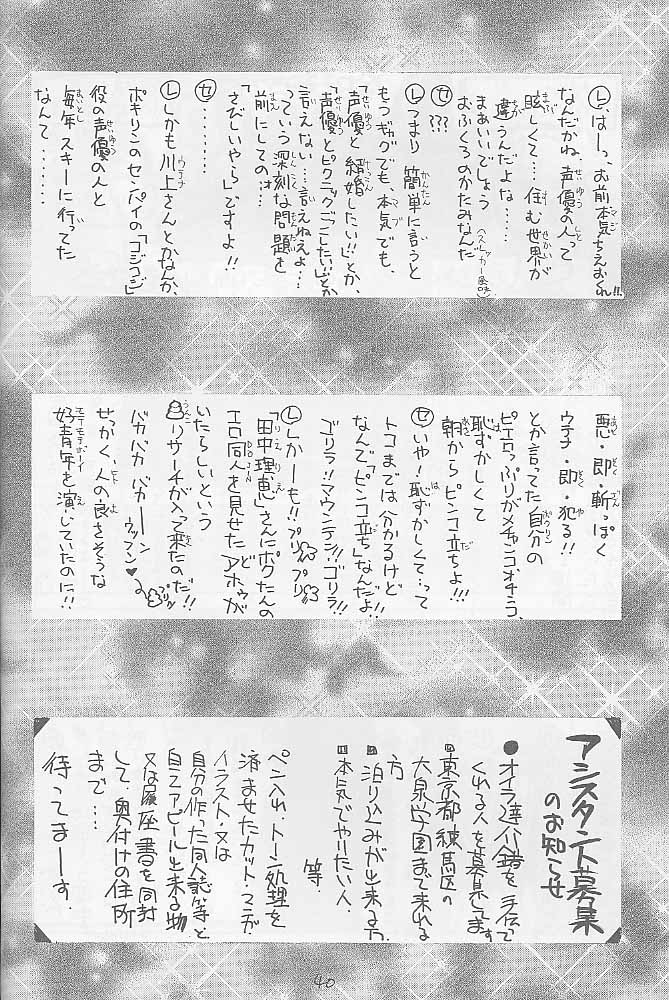 Ⓛはーっ、お前本気ちえおくれ!!
なんだかね、声優の人って
眩しくて…住む世界が
違うんだよな……
まあいいでしょう
おふくろのかたみなんだ
㋝???
Ⓛつまり簡単に言うと
もっギャグでも、本気でも、
「声優と結婚したい!!」とか、
「声優とピクニックごーしたい!!」とか
言えない…言えねえよ…
っていう深刻な問題を
前にしてのォ…
「さびしいやら」ですよ!!
㋝・・・・・・
Ⓛしかも川上さんとかなんか、
ポキリンのセンパイの「コジコジ」
役の声優の人と
毎年スキーに行ってた
なんて……
悪・即・斬っぽく
ウ子・即・犯る!!
とか言ってた自分の
ピエロっぷりがメチャンコオチョコ、
恥ずかしくて
朝からピンコ立ちよ!!!
㋝いや!恥ずかしくて…って
トコまでは分かるけど
なんで「ピンコ立ち」なんだよ!!
ゴリラ!!マウンテン!!ゴリラ!!
Ⓛしかーも!!プリプリ
「田中理恵」さんにポクたんの
エロ同人を見せたアホゥが
いたらしいという
リサーチが入って来たのだ!!
バカバカバカーン
ウッフン♥
せっかく、人の良さそうな
好青年を演じていたのに!!
アシスタント募集
のお知らせ
●オイラ達が錯を手伝って
くれる人を募集してます
■東京都練馬区の
大泉学園まで来れる
方
■泊り込みが出来る方
■本気でやりたい人
等
ペン入れ、トーン処理を
済ませたカット・マンガ
イラスト・又は
自分の作った同人誌等と
自己アピール出来る物
又は履歴書を同封
して、奥付けの住所
まで…
待ってまーす。
40